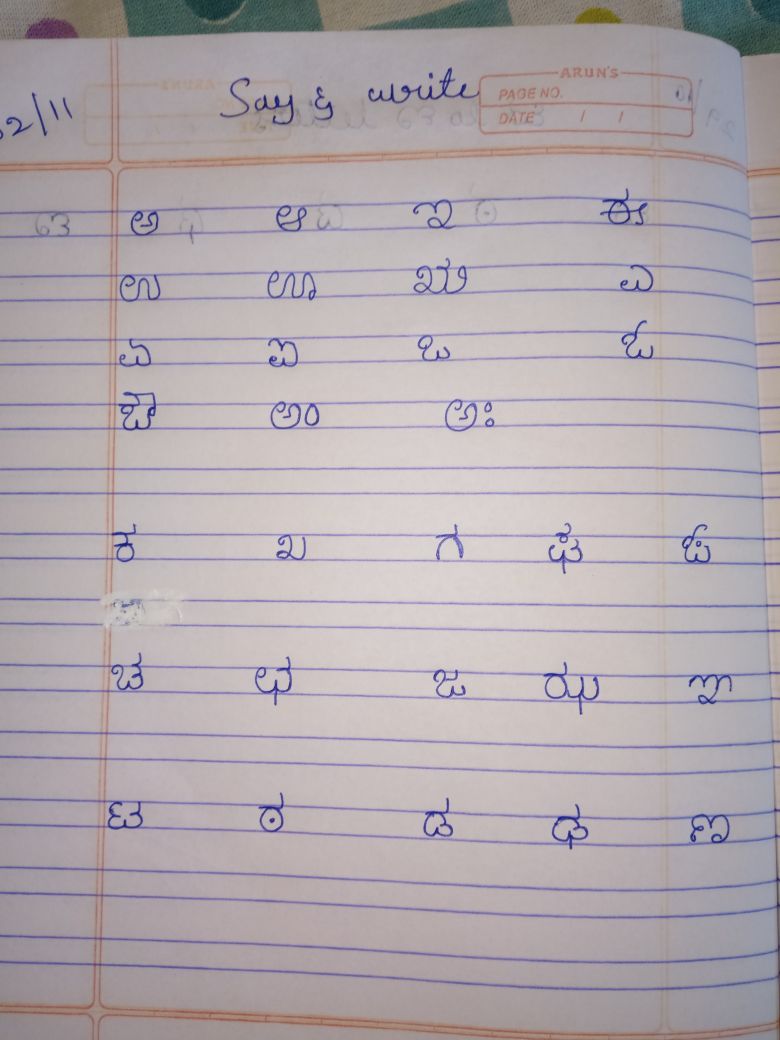 Say & write
ARUN'S
PAGE NO.
DATE / /
2/11
ಅ ಆ ಇ ಈ
ಉ ಊ ಋ ಎ
ಏ ಐ ಒ ಓ
ಔ ಅಂ ಅಃ
ಕ ಖ ಗ ಘ ಙ
ಚ ಛ ಜ ಝ ಞ
ಟ ಠ ಡ ಢ ಣ